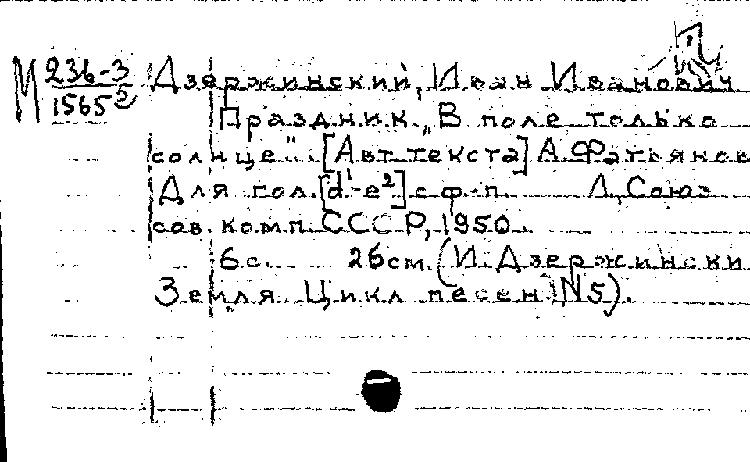 М 236-3 Дзержинский, Иван Иванович
1565² Праздник. „В поле только
солнце"... [Авт. текста] А. Фатьянов
Для гол. [d¹-e²] с ф-п. Л., Союз
сов. комп. СССР, 1950.
6 с. 26 см. (И. Дзержински
Земля. Цикл песен N5).